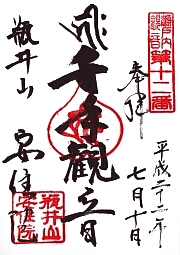 瀬戸内観音第十二番
奉拝
平成二十二年
七月十日
千手観音
瓶井山
安住院
瓶井山
安住院